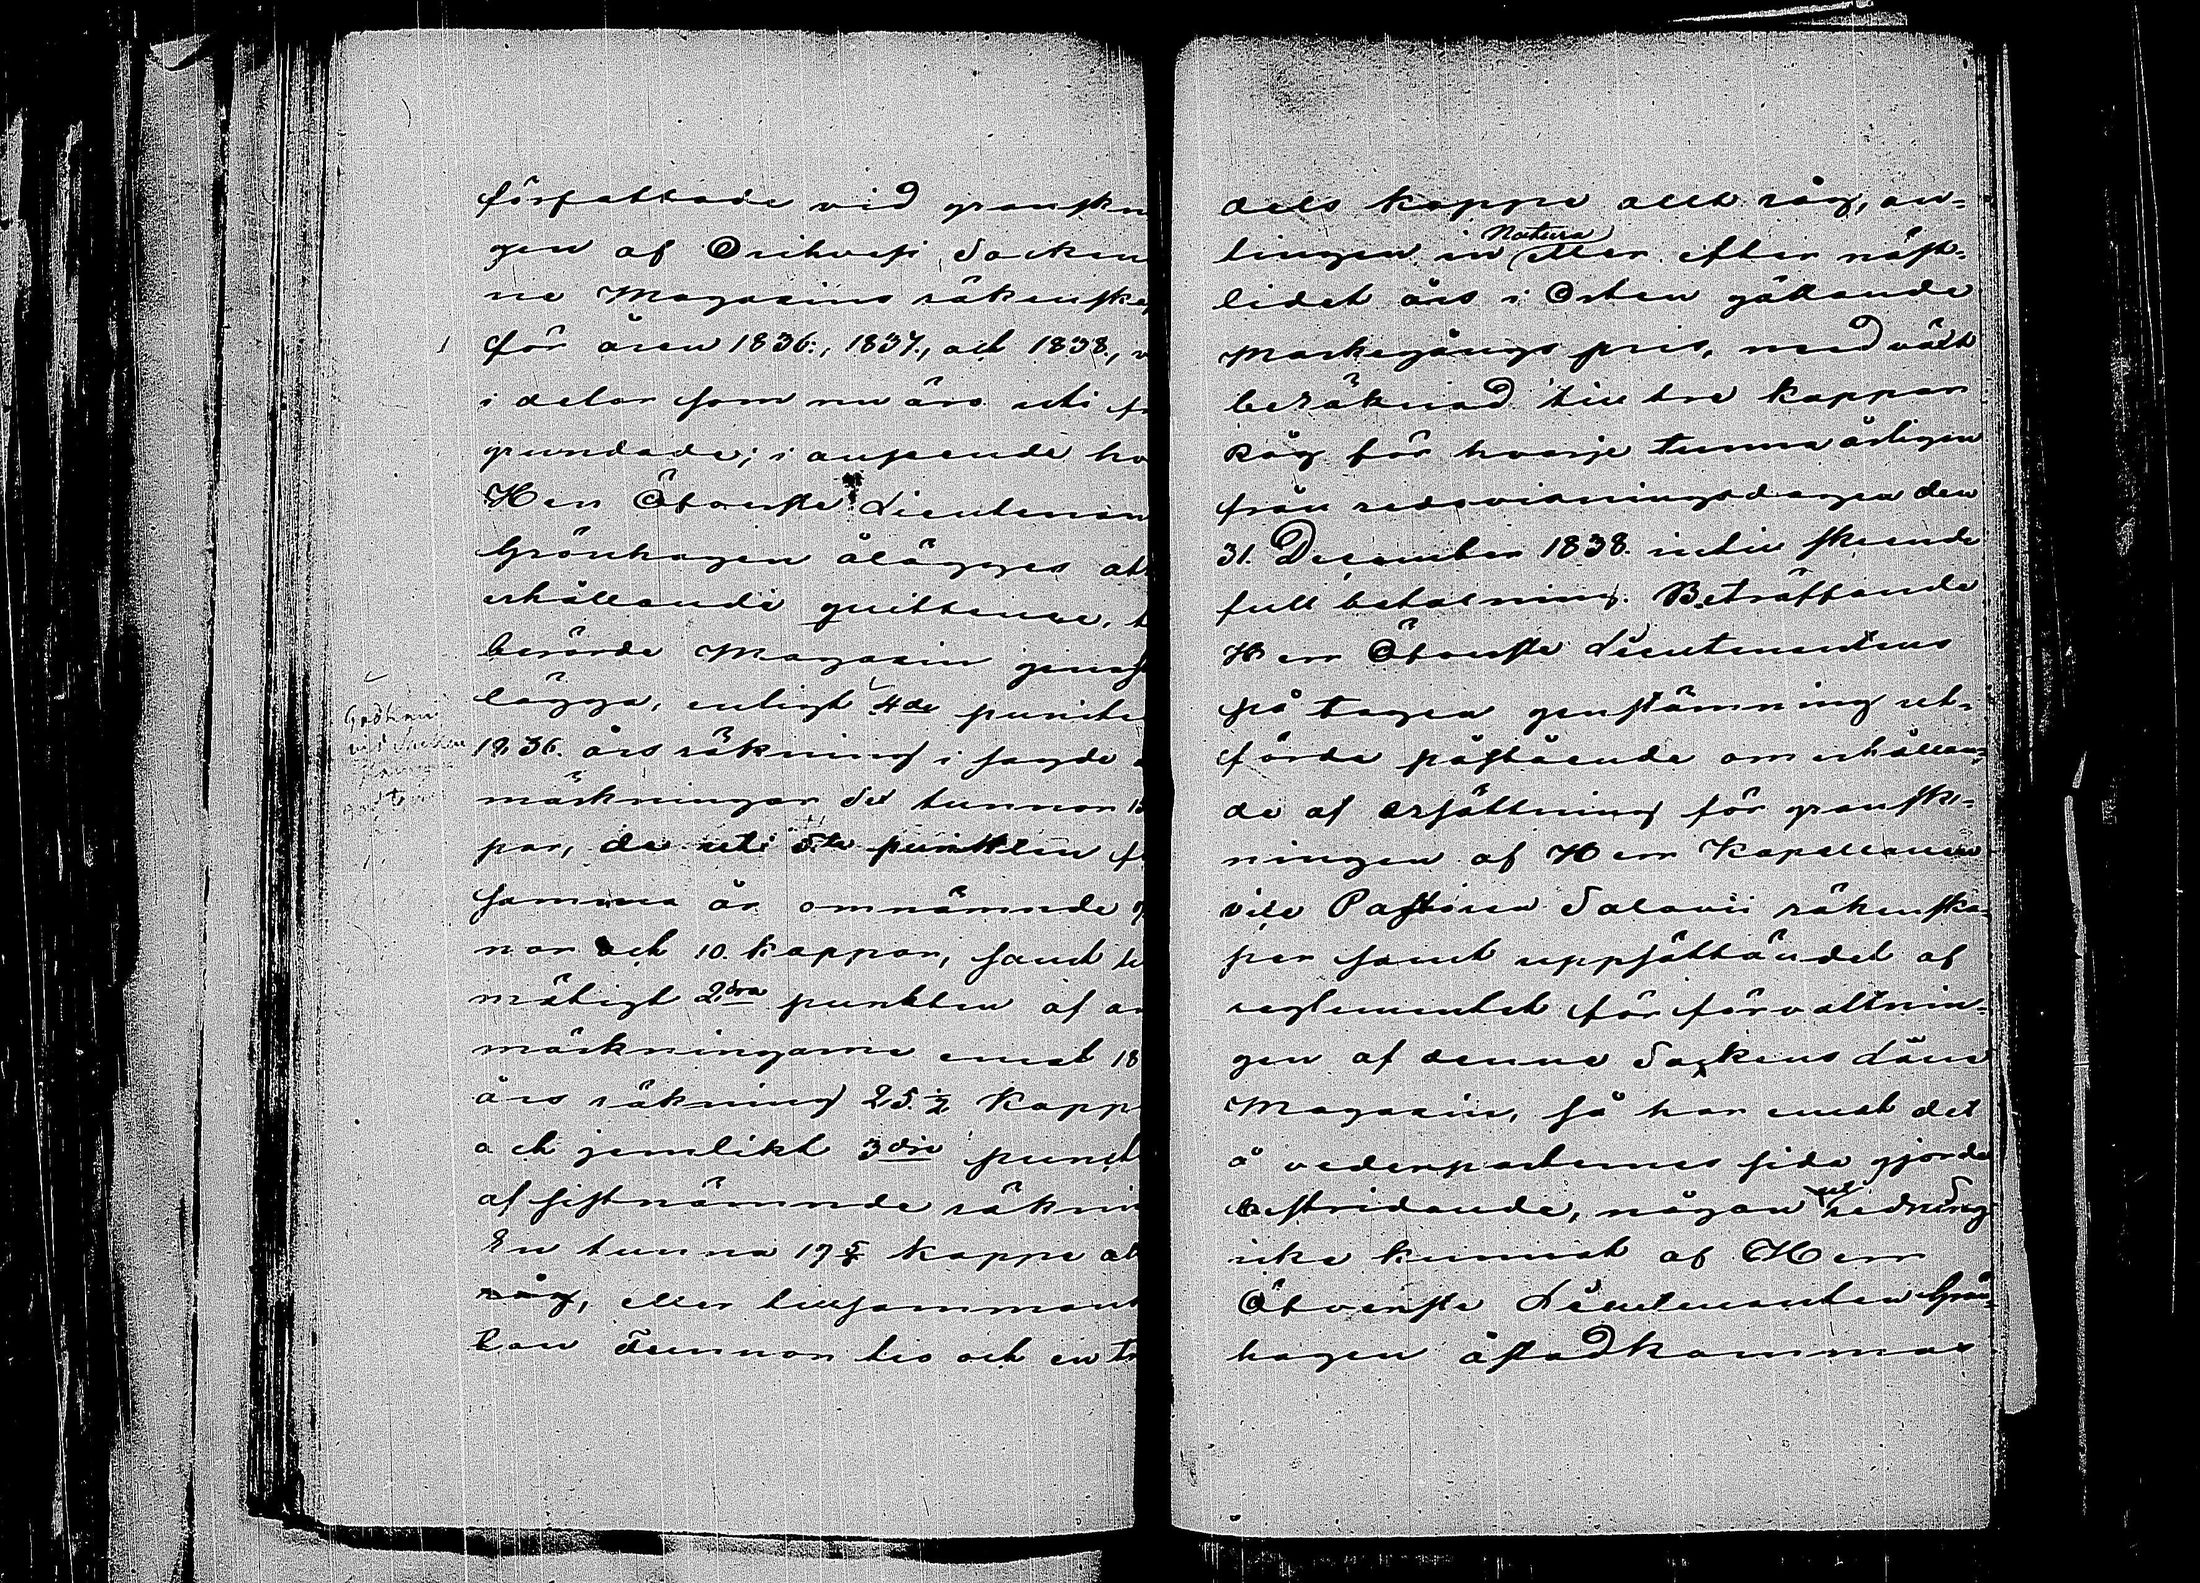 författade vid granskn
gen af Orihvesi Socken
ne Magasins räkenska
för åren 1836., 1837., och 1838.,
i delar som nu äro uti
grundade; i anseende
Herr Öfverste Lieutenan
Grönhagen ålägges at
erhållande quittence,
berörde Magasin genast
lägga, enligt 4de puncte
1836. års räkning i sagde
märkningar tunnor
par, de uti 5te punkten
samma år omnämnde
nor och 10. kappar, samt
mätigt 2dra punkten af an
märkningarne emot 18
års räkning 25.½ Kapp
och jemlikt 3die punct
af sistnämnde räknin
En tunna kappe al
råg, eller tillsammans
tan Tunnor tio och en tr
Godkän
dels kappe allt råg, an-
tingen in Natura eller efter näst-
lidet års i Orten gällande
Markegångs pris, med växt
beräknad till tre kappar
Råg för hvarje tunna årligen
från redovisningsdagen den
31. December 1838. intill skeende
full betalning. Beträffande
Herr Öfverste Lieutenantens
på tagen genstämning ut-
förda påstående om erhållan-
de af ersättning för gransk-
ningen af Herr Kapellanen
vice Pastoren Salovii räkenska-
per samt uppsättandet af
reglementet för förvaltnin-
gen af denne Sockens Låne
Magasin, så har emot det
å vederparternes sida gjorde
bestridande, någon utredning
icke kunnat af Herr
Öfverste Lieutenanten Grön-
hagen åstadkommas